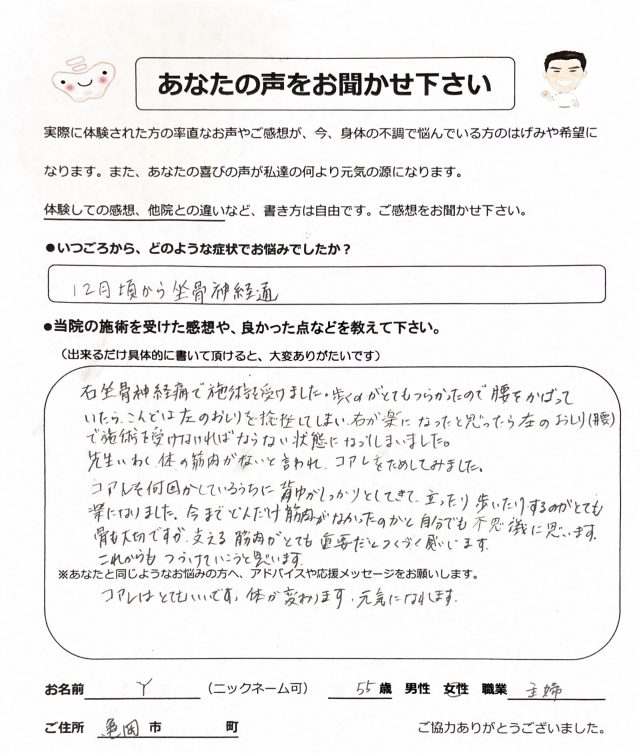 あなたの声をお聞かせ下さい
実際に体験された方の率直なお声やご感想が、今、身体の不調で悩んでいる方のはげみや希望に
なります。また、あなたの喜びの声が私達の何より元気の源になります。
体験しての感想、他院との違いなど、書き方は自由です。ご感想をお聞かせ下さい。
●いつごろから、どのような症状でお悩みでしたか？
12月頃から坐骨神経通
●当院の施術を受けた感想や、良かった点などを教えて下さい。
（出来るだけ具体的に書いて頂けると、大変ありがたいです）
右坐骨神経痛で施術を受けました。歩くのがとてもつらかったので腰をかばって
いたら、こんどは左のおしりを捻挫してしまい、右が楽になったと思ったら左のおしり(腰)
で施術を受けないればならない状態になってしまいました。
先生いわく、体の筋肉がないと言われ、コアレをためしてみました。
コアレを何回かしているうちに背中がしっかりとしてきて、立ったり歩いたりするのがとても
楽になりました。今までどんだけ筋肉がなかったのかと自分でも不思議に思います。
骨も大切ですが、支える筋肉がとても重要だとつくづく感じます。
これからもつづけていこうと思います。
※あなたと同じようなお悩みの方へ、アドバイスや応援メッセージをお願いします。
コアレはとてもいいです。体が変わります。元気になれます。
お名前 Y （ニックネーム可） 55歳 男性 女性 職業 主婦
ご住所 亀岡市 町 ご協力ありがとうございました。